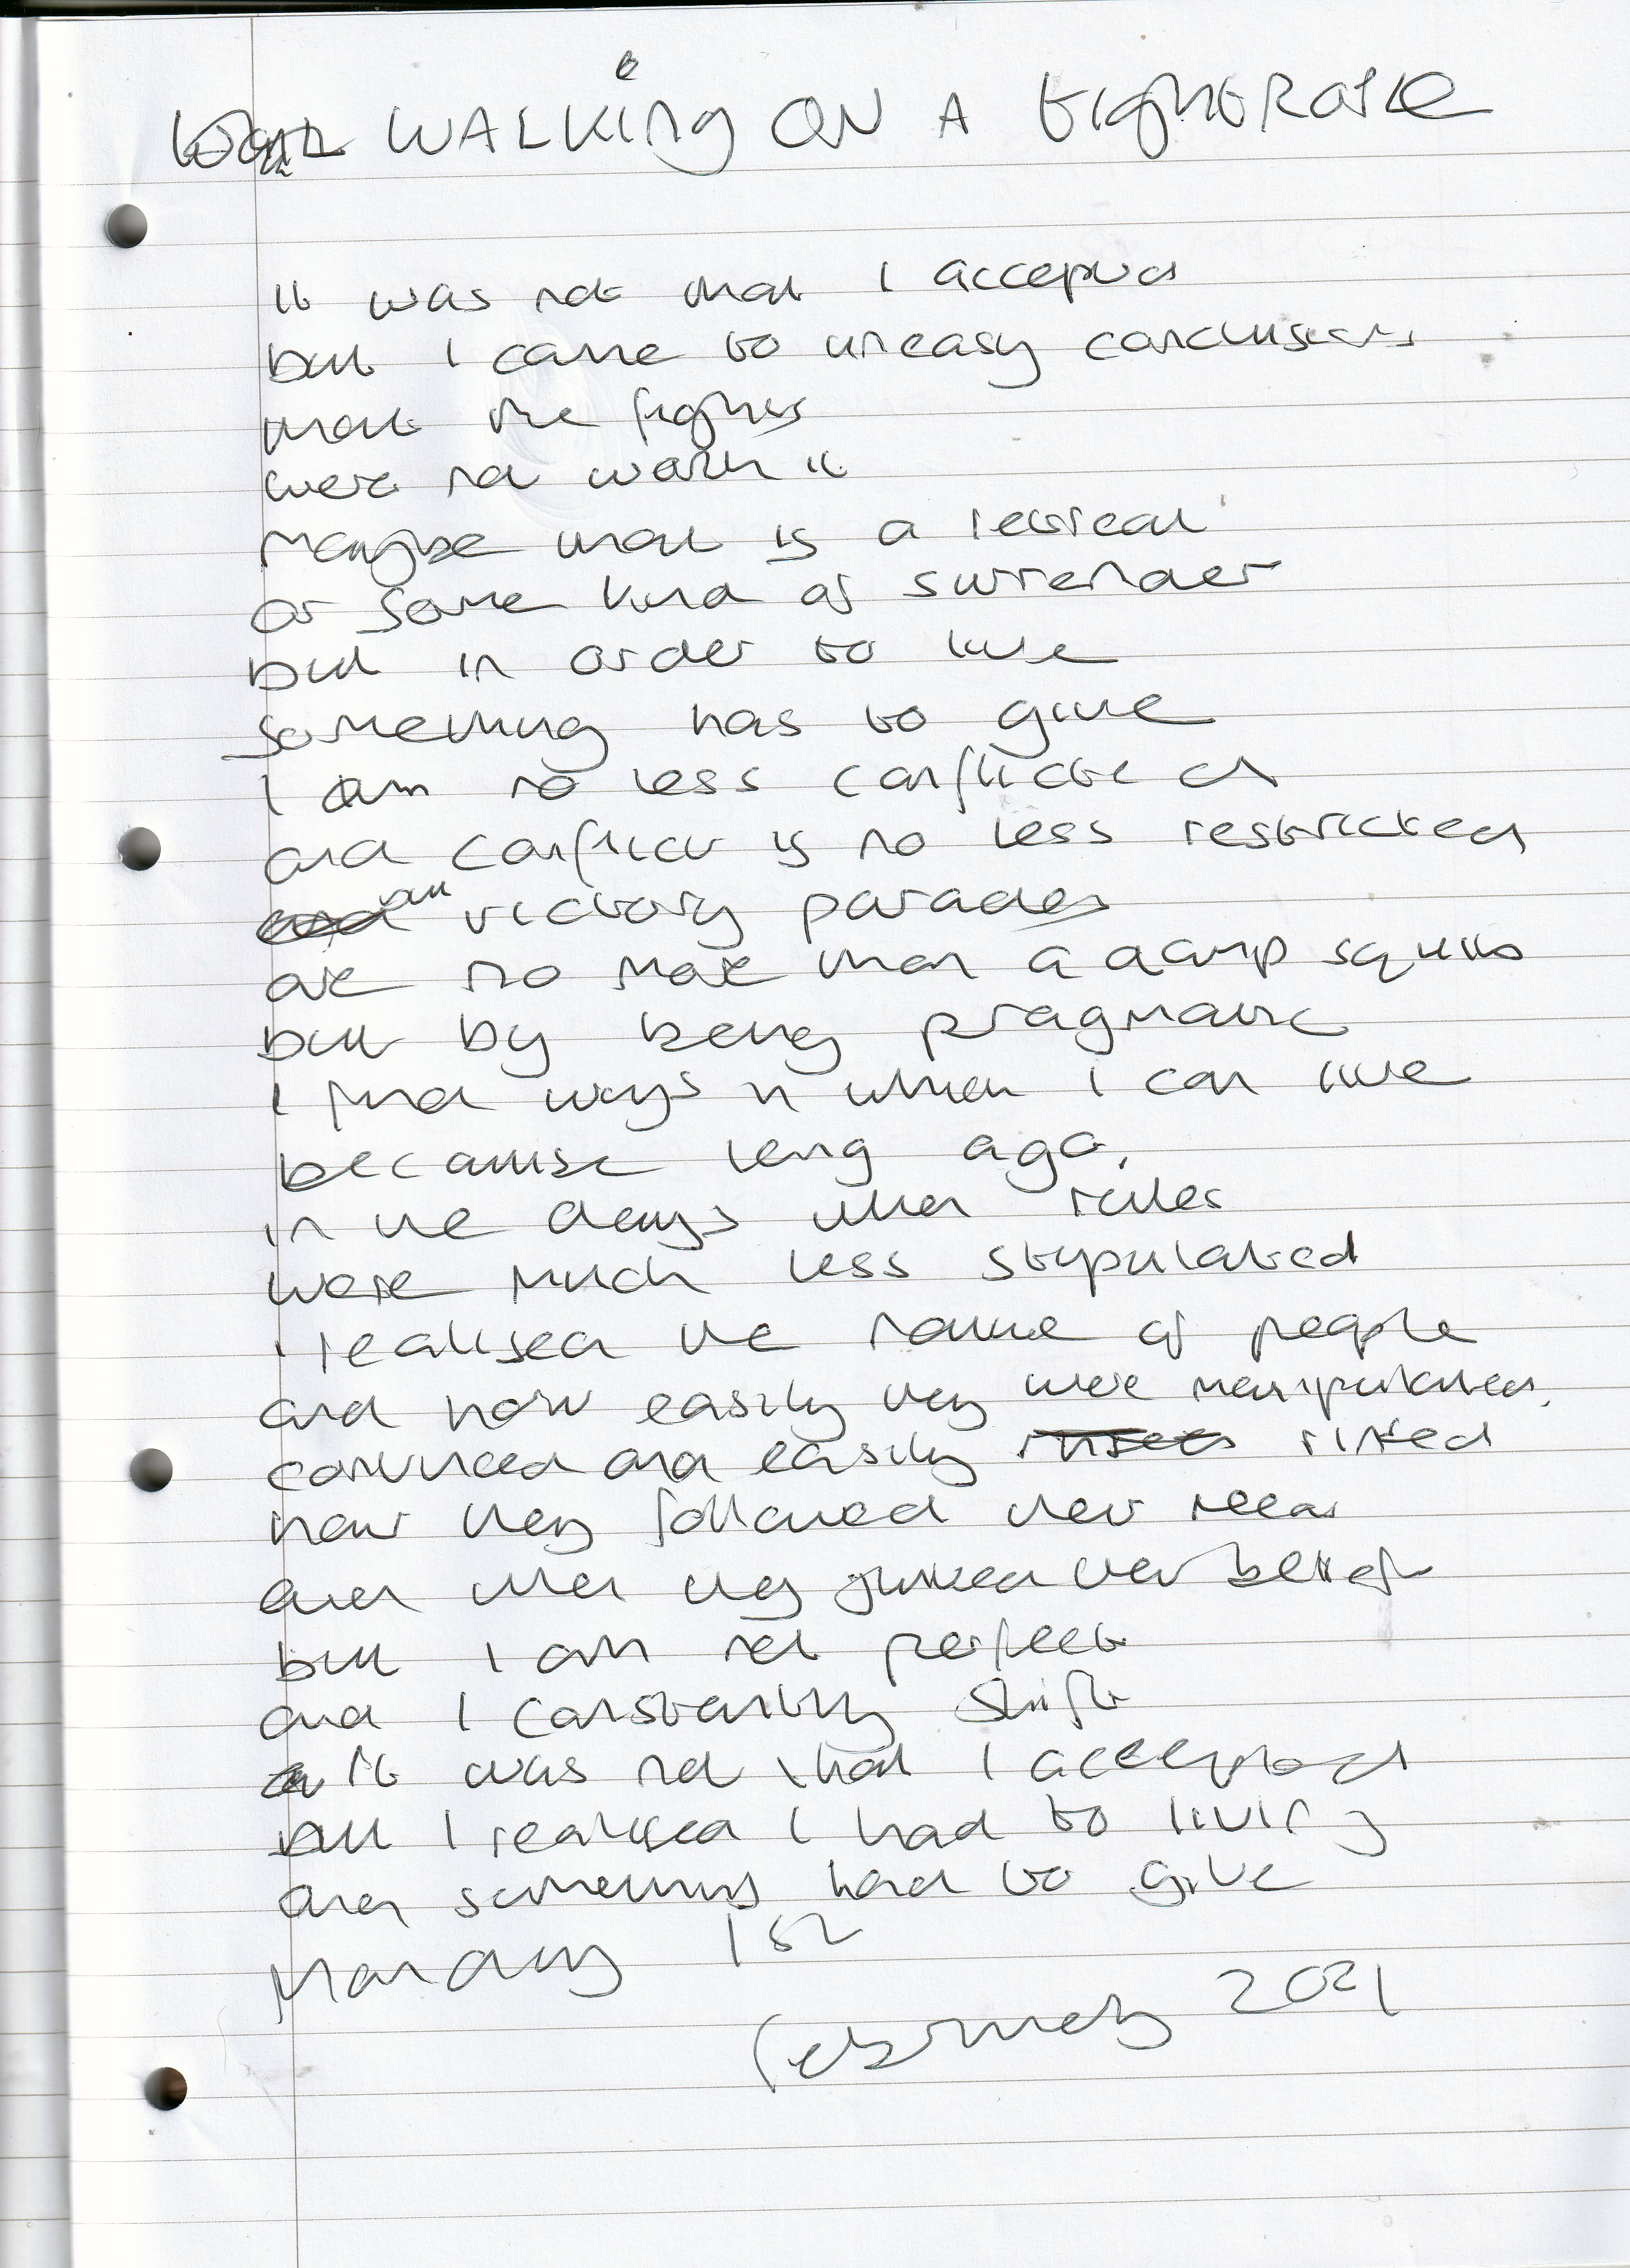 WALKING ON A TIGHTROPE
It was not that I accepted
but I came to uneasy conclusions
that the fights
were not worth it
Maybe that is a retreat
or some kind of surrender
but in order to live
something has to give
I am no less conflicted
and conflict is no less restricted
all victory parades
are no more than a damp squib
but by being pragmatic
I find ways in which I can live
because long ago,
in the days when rules
were much less stipulated
I realised the nature of people
and how easily they were manipulated,
convinced and easily riled
how they followed their need
and when they junked their belief
but I am not perfect
and I constantly shift
it was not that I accepted
but I realised I had to living
and something had to give
Monday 1st
February 2021